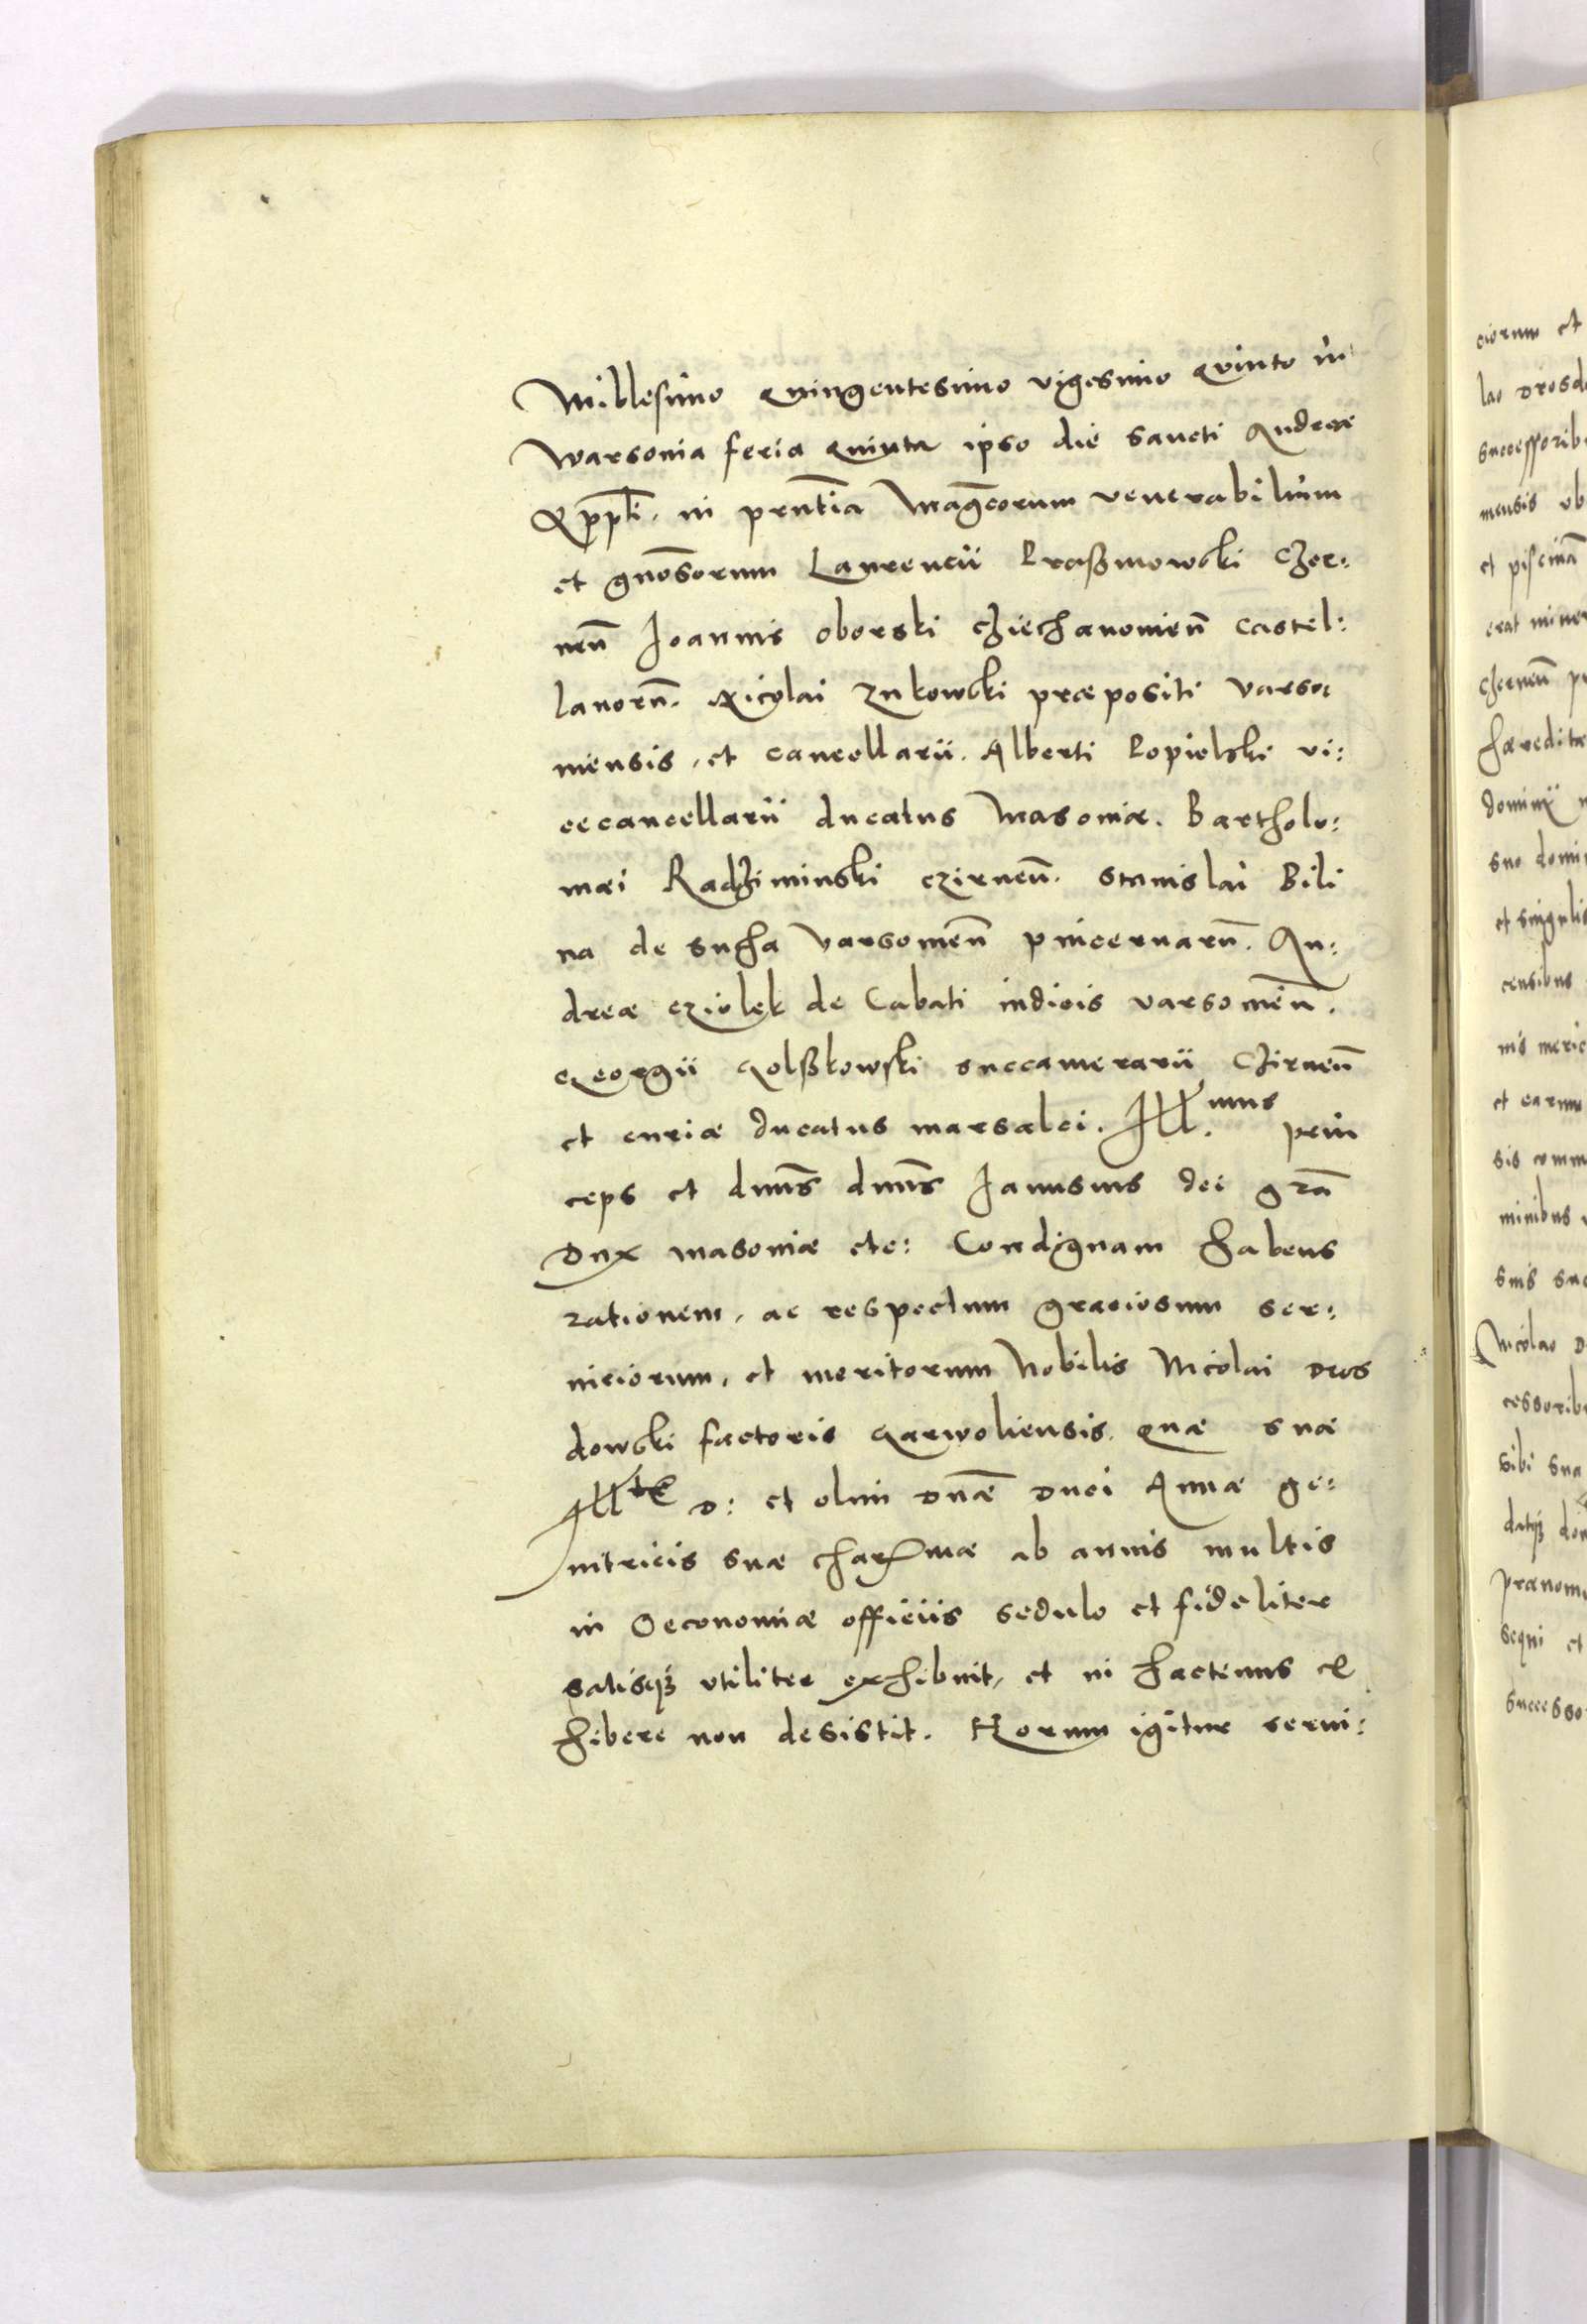 Millesimo Quingentesimo vigesimo Quinto in
Warsouia feria Quinta ipso die sancti Andreæ
Appli. in prntia Magcorum venerabilium
et gnosorum Laurencii Praßmowski Czer:
nen̄ Ioannis Oborski Cziechanouien̄ Castel:
lanorū. Nicolai Zukowski præpositi Varso
uiensis, et cancellarii. Alberti Popielski vi:
cecancellarii ducatus Masouiæ. Bartholo:
mæi Radziminski Czirnen̄. Stanislai Bili
na de Sucha Varsouien̄ pincernarū. An:
dreæ Cziolek de Cabati iudicis Varsouien̄.
Georgii Golßkowski succamerarii Czirnen̄
et curiæ ducatus marsalci. Ill.mus prin
ceps et dnūs dnūs Ianusius dei grā
Dux Masouiæ etc: Condignam habens
rationem, ac respectum graciosum ser:
uiciorum, et meritorum Nobilis Nicolai Dros
dowski factoris Garwoliensis. Quæ suæ
Ill.tæ D: et olim Dnæ Duci Annæ ge:
nitricis suæ charmæ ab annis multis
in Oeconomiæ officiis sedulo et fideliter
satisq3 vtiliter exhibuit, et in hactenus ex
hibere non desistit. Horum igitur serui:
ciorum et
lao Drosd
successorib
et piscinā
Czernen̄
hæredita
dominii
suo domi
et singulis
censibus
et earum
sis comm
minibus
suis suc
Nicolao D
cessorib
sibi sua
datq3 do
prænomi
sequi et
successo